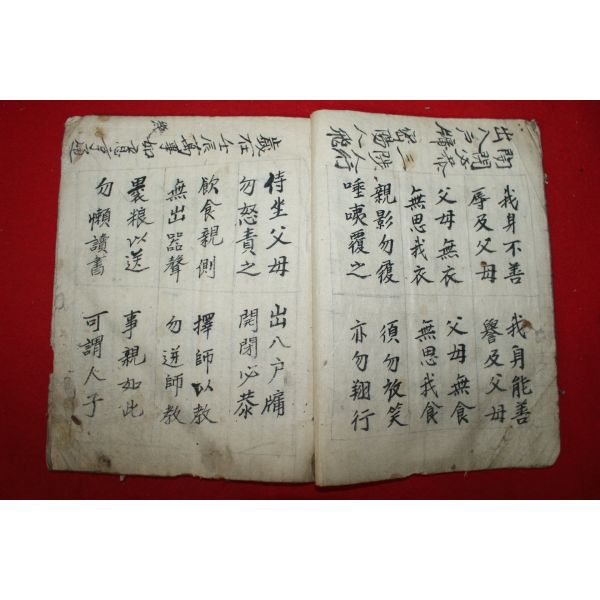 我身不善 我身能善
辱及父母 譽及父母
父母無衣 父母無食
無思我衣 無思我食
親影勿履 須勿放笑
唾洟覆之 亦勿翔行
歲在壬辰萬事如意亨通
侍坐父母 出入户牖
勿怒責之 開閉必恭
飲食親側 擇師以教
無出器聲 勿逆師教
褁粮以送 事親如此
勿懶讀書 可謂人子